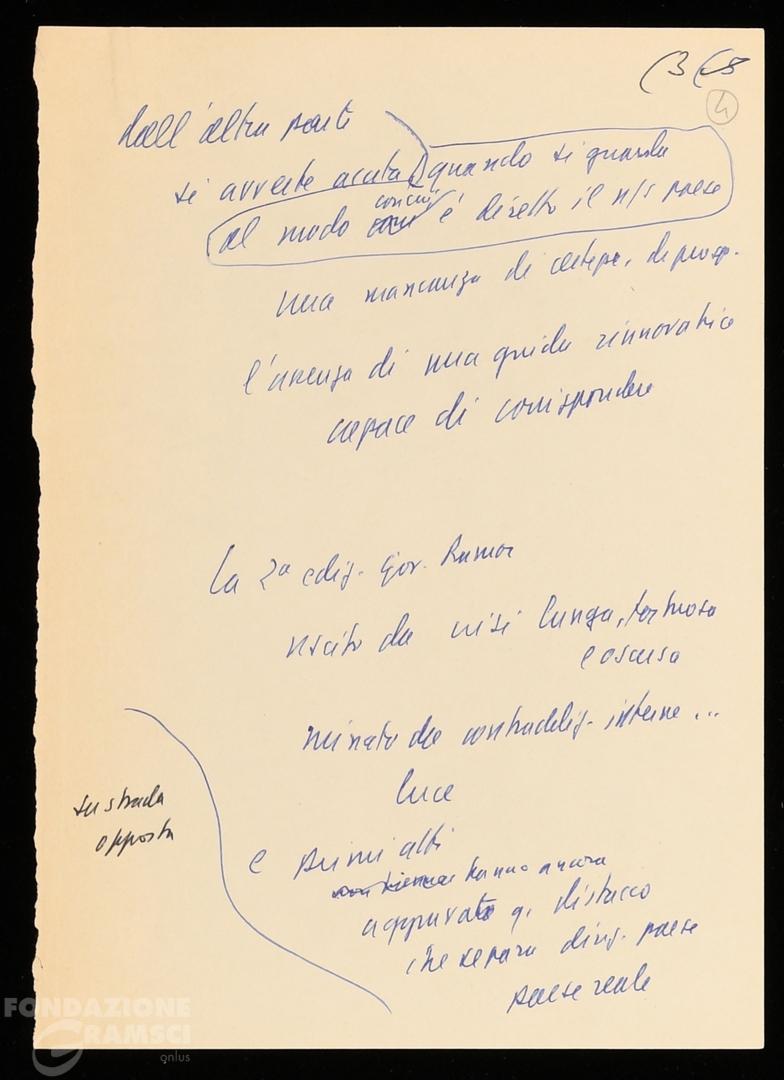 4
Dall'altra parte
si avverte acuta quando si guarda
al modo con cui è diretto il n/s paese
una mancanza di certezze, di prosp.
l'assenza di una guida rinnovatrice
capace di corrispondere
La 2ª ediz. Gov. Rumor
uscito da crisi lunga, tortuosa
e oscura
minato da contraddiz. interne ...
luce
e primi atti
hanno ancora
aggravato q. distacco
che separa dirig. paese
paese reale
su strada
opposta
FONDAZIONE
GRAMSCI
onlus